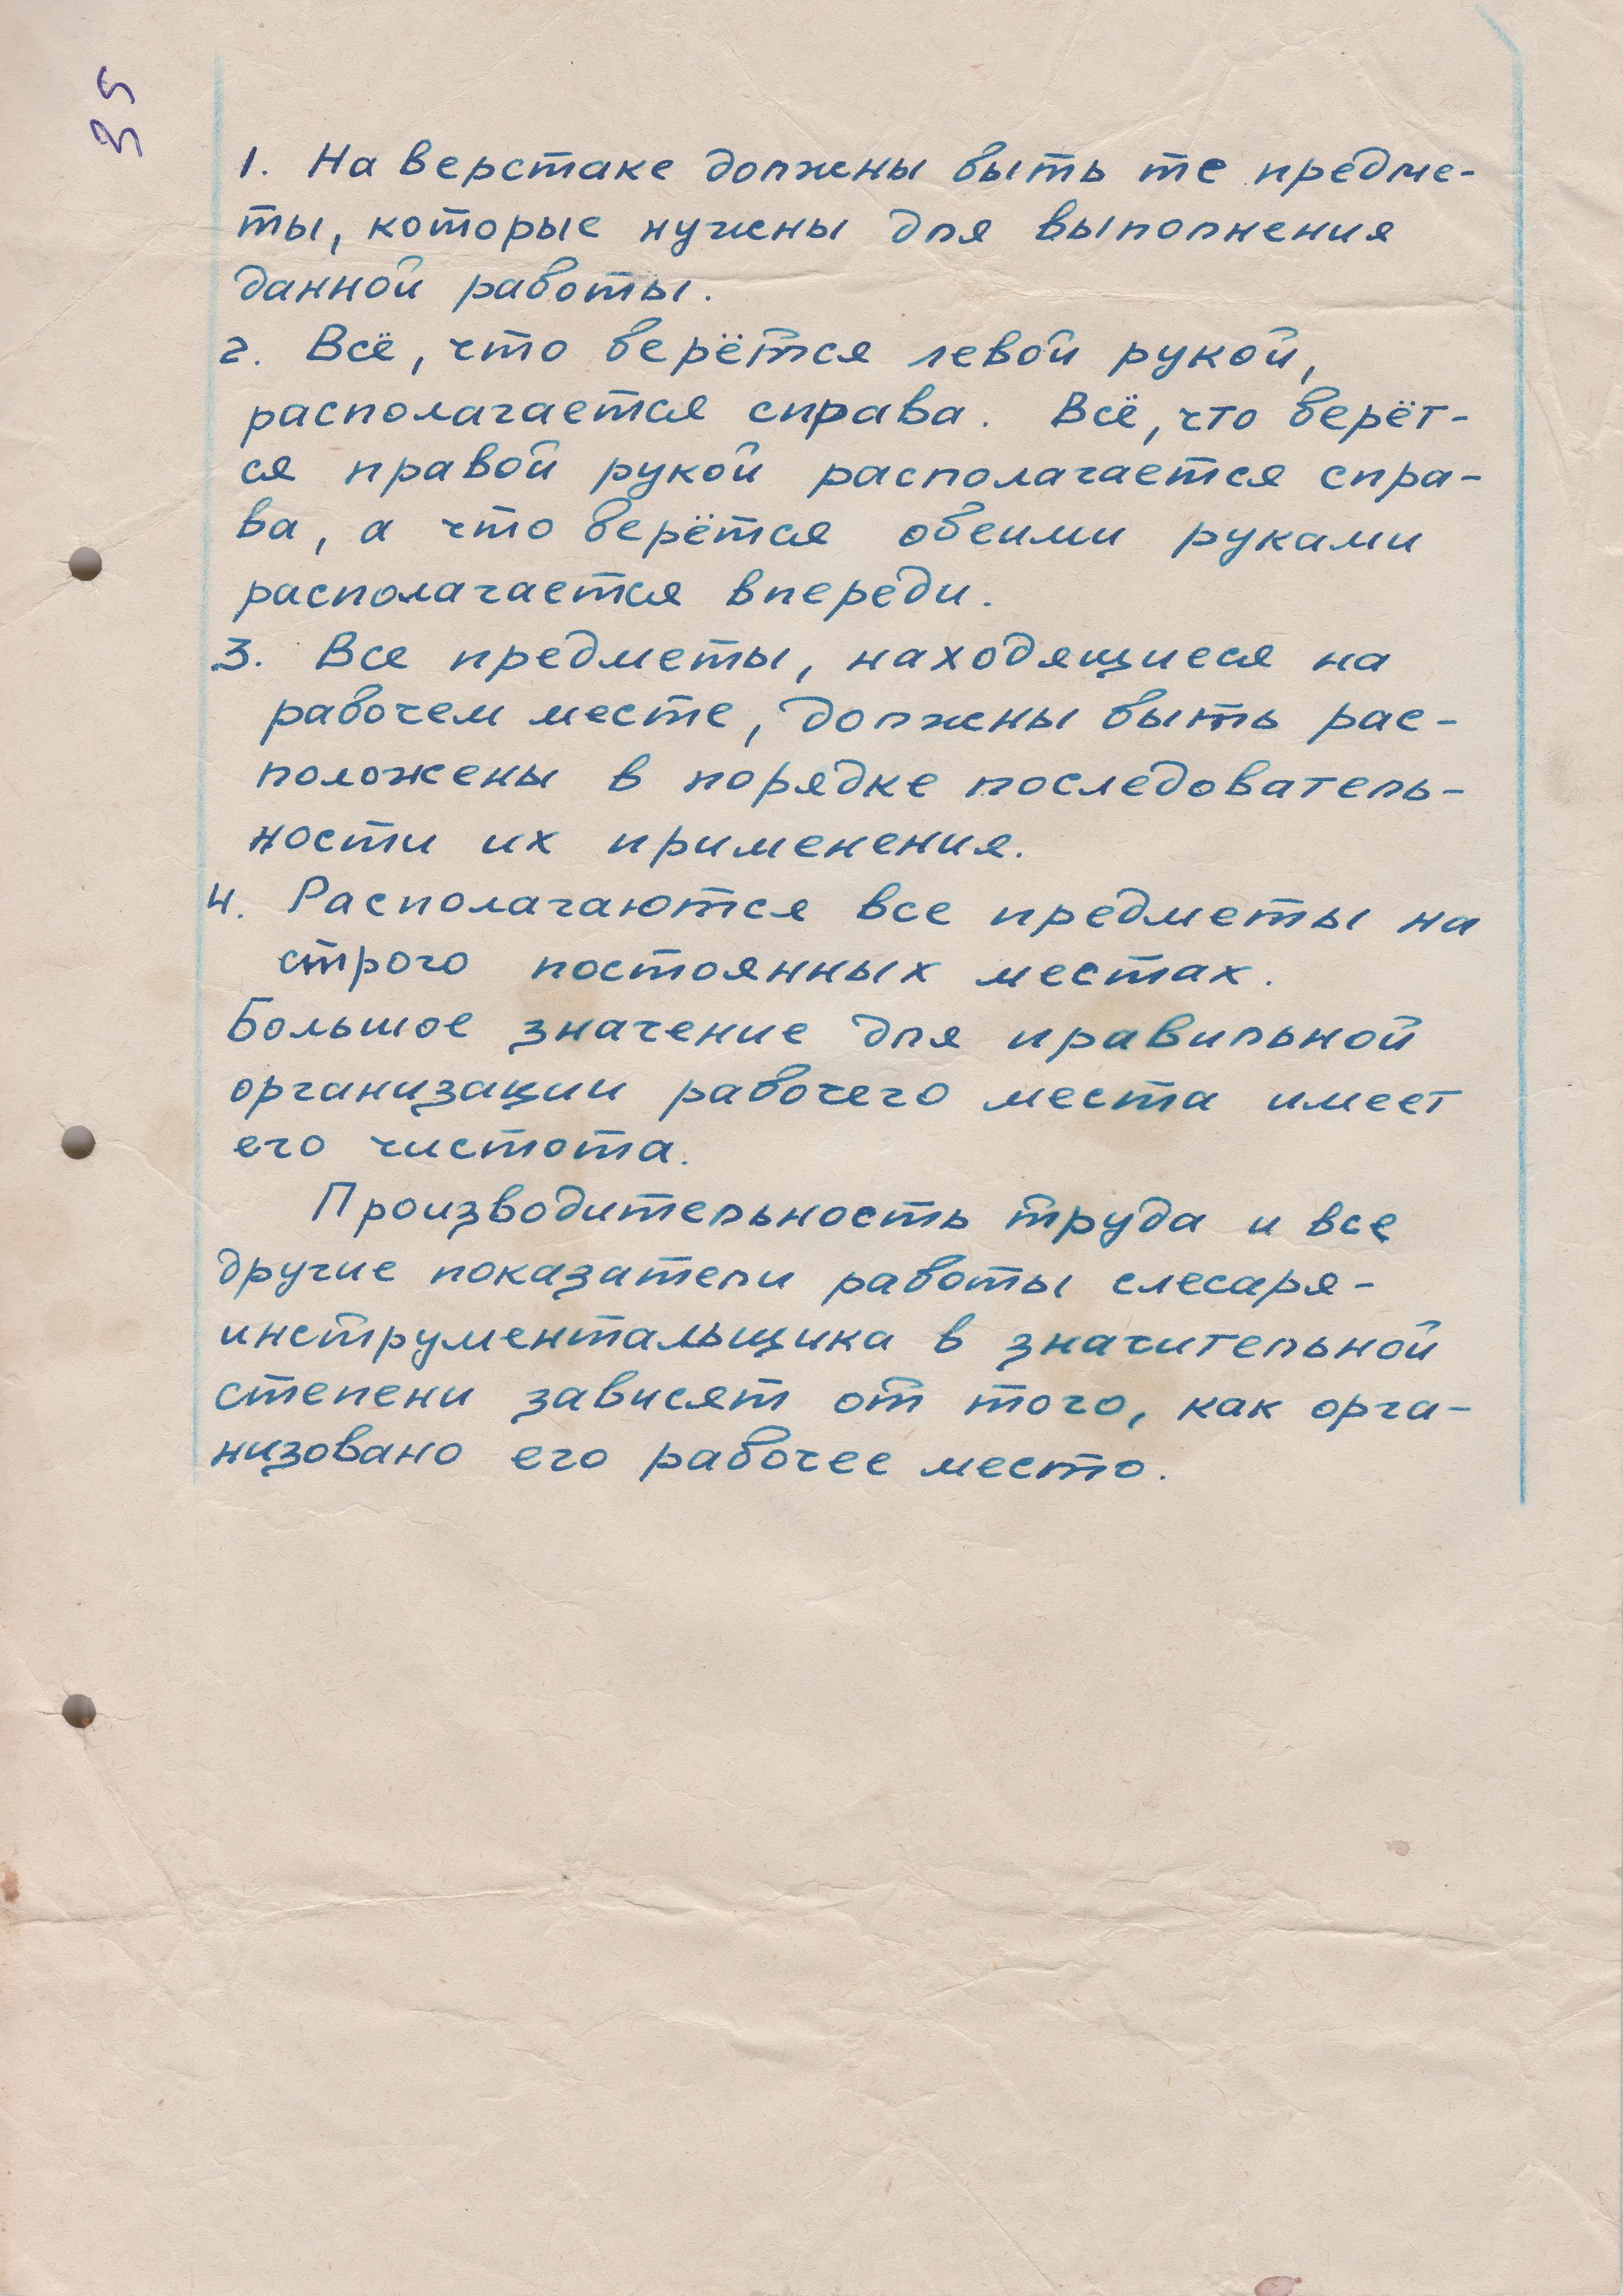 35
1. На верстаке должны быть те предме-
ты, которые нужны для выполнения
данной работы.
2. Всё, что берётся левой рукой,
располагается справа. Всё, что берёт-
ся правой рукой располагается спра-
ва, а что берётся обеими руками
располагается впереди.
3. Все предметы, находящиеся на
рабочем месте, должны быть рас-
положены в порядке последователь-
ности их применения.
4. Располагаются все предметы на
строго постоянных местах.
Большое значение для правильной
организации рабочего места имеет
его чистота.
Производительность труда и все
другие показатели работы слесаря-
инструментальщика в значительной
степени зависят от того, как орга-
низовано его рабочее место.